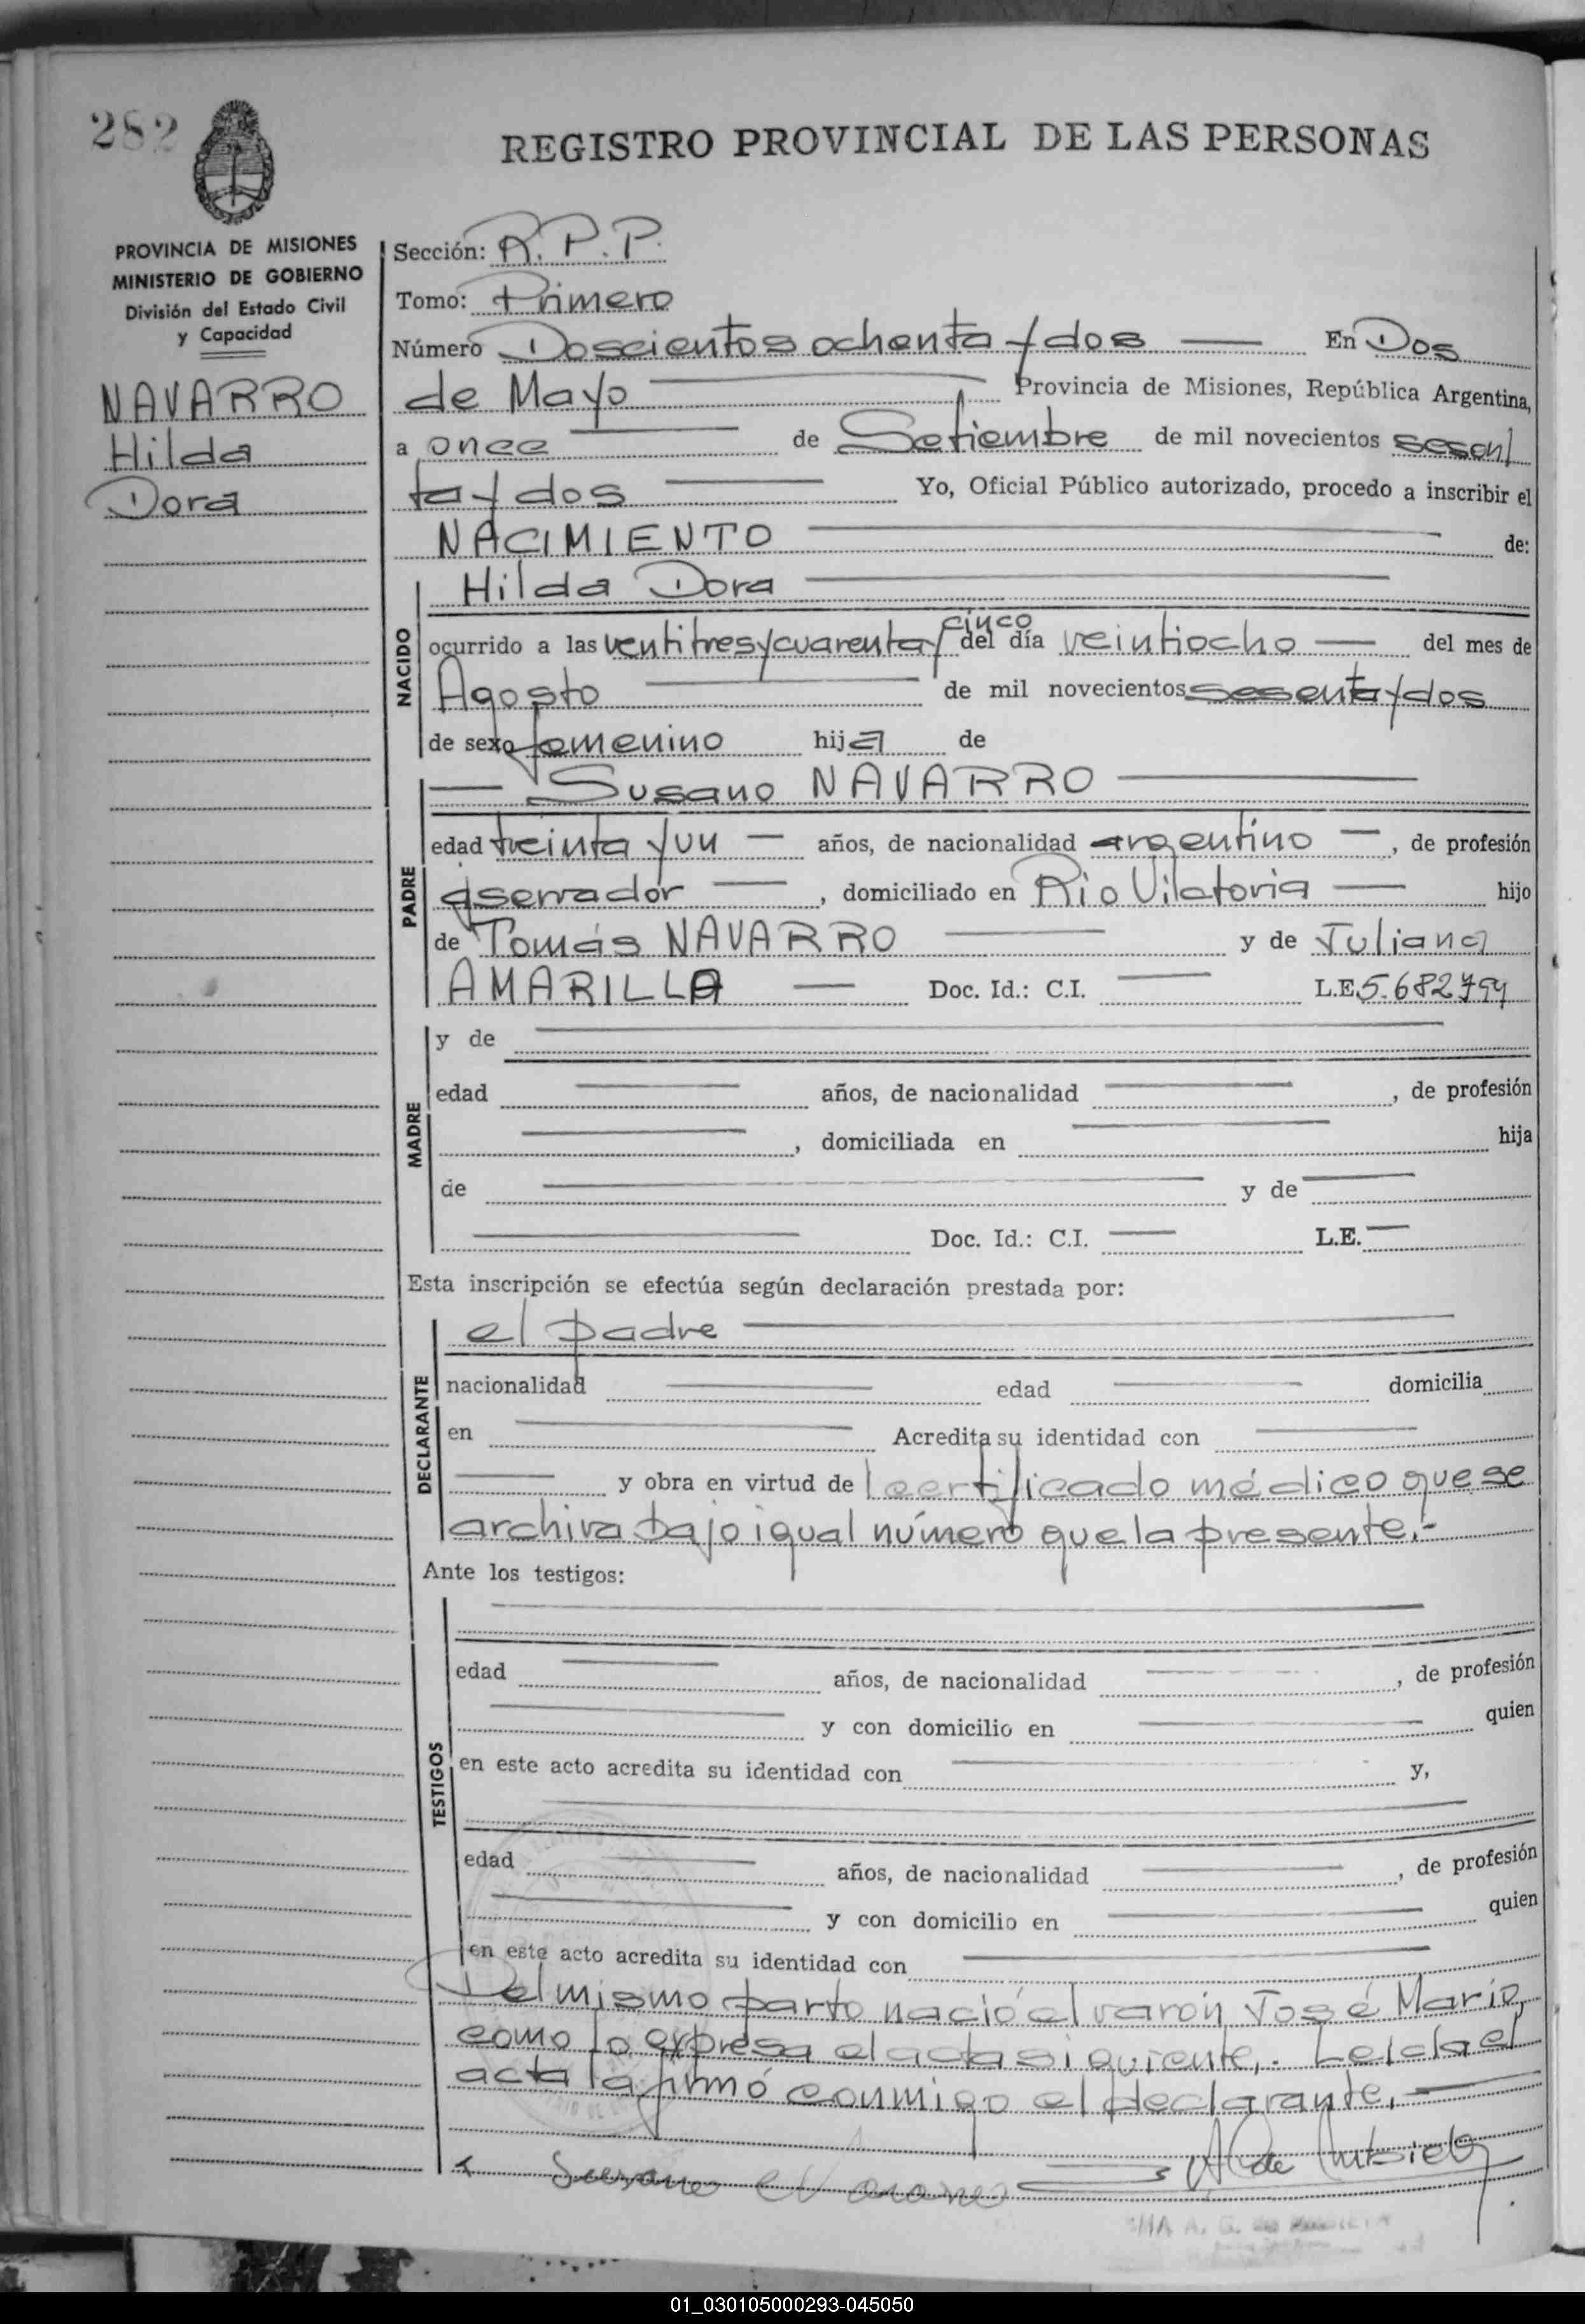 282
REGISTRO PROVINCIAL DE LAS PERSONAS
PROVINCIA DE MISIONES
MINISTERIO DE GOBIERNO
División del Estado Civil
y Capacidad
NAVARRO
Hilda
Dora
Sección: R.P.P.
Tomo: Primero
Número Doscientos ochenta y dos En Dos
de Mayo Provincia de Misiones, República Argentina,
a once de Setiembre de mil novecientos sesen
ta y dos Yo, Oficial Público autorizado, procedo a inscribir el
NACIMIENTO de:
Hilda Dora
NACIDO
cinco
ocurrido a las ventitres y cuarenta y del día veintiocho del mes de
Agosto de mil novecientos sesenta y dos
de sexo femenino hija de
Susano NAVARRO
PADRE
edad treinta y un años, de nacionalidad argentino, de profesión
aserrador, domiciliado en Rio Vilatoria hijo
de Tomás NAVARRO y de Juliana
AMARILLA Doc. Id.: C.I. L.E. 5.682
MADRE
y de
edad años, de nacionalidad , de profesión
, domiciliada en hija
de y de
Doc. Id.: C.I. L.E.
Esta inscripción se efectúa según declaración prestada por:
DECLARANTE
el padre
nacionalidad edad domicilia
en Acredita su identidad con
y obra en virtud de certificado médico que se
archiva bajo igual número que la presente.-
Ante los testigos:
TESTIGOS
edad años, de nacionalidad , de profesión
y con domicilio en quien
en este acto acredita su identidad con y,
edad años, de nacionalidad , de profesión
y con domicilio en quien
en este acto acredita su identidad con
Del mismo parto nació el varón José Mario,
como lo expresa el acta siguiente.. Leída el
acta la firmó conmigo el declarante.
Susano Navarro
01_030105000293-045050